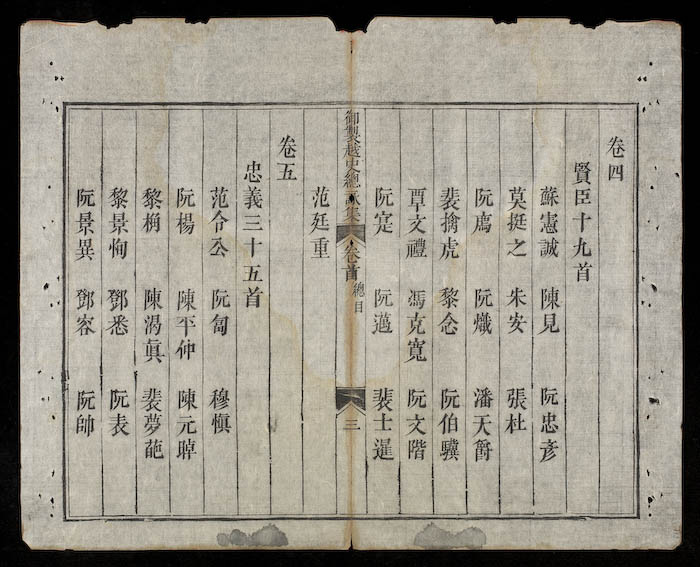 卷四
賢臣十九首
蘇憲誠 陳見 阮忠彥
莫挺之 朱安 張杜
阮廌 阮熾 潘天爵
裴擒虎 黎念 阮伯驥
覃文禮 馮克寬 阮文階
阮寔 阮邁 裴士暹
范廷重
御製越史總詠集 卷首 總目 三
卷五
忠義三十五首
范令公 阮匐 穆愼
阮楊 陳平仲 陳元晫
黎桷 陳渴眞 裴夢葩
黎景恂 鄧悉 阮表
阮景異 鄧容 阮帥